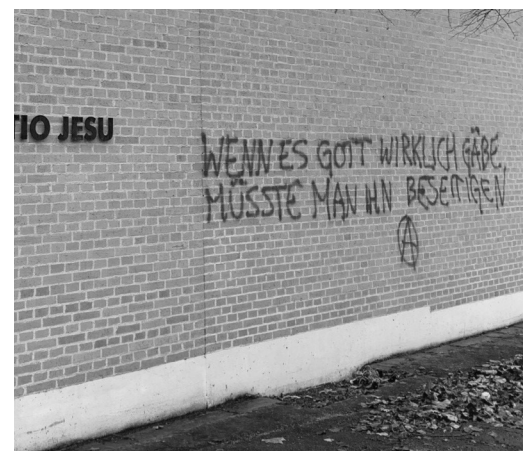 TIO JESU
WENN ES GOTT WIRKLICH GÄBE,
MÜSSTE MAN IHN BESEITIGEN
A